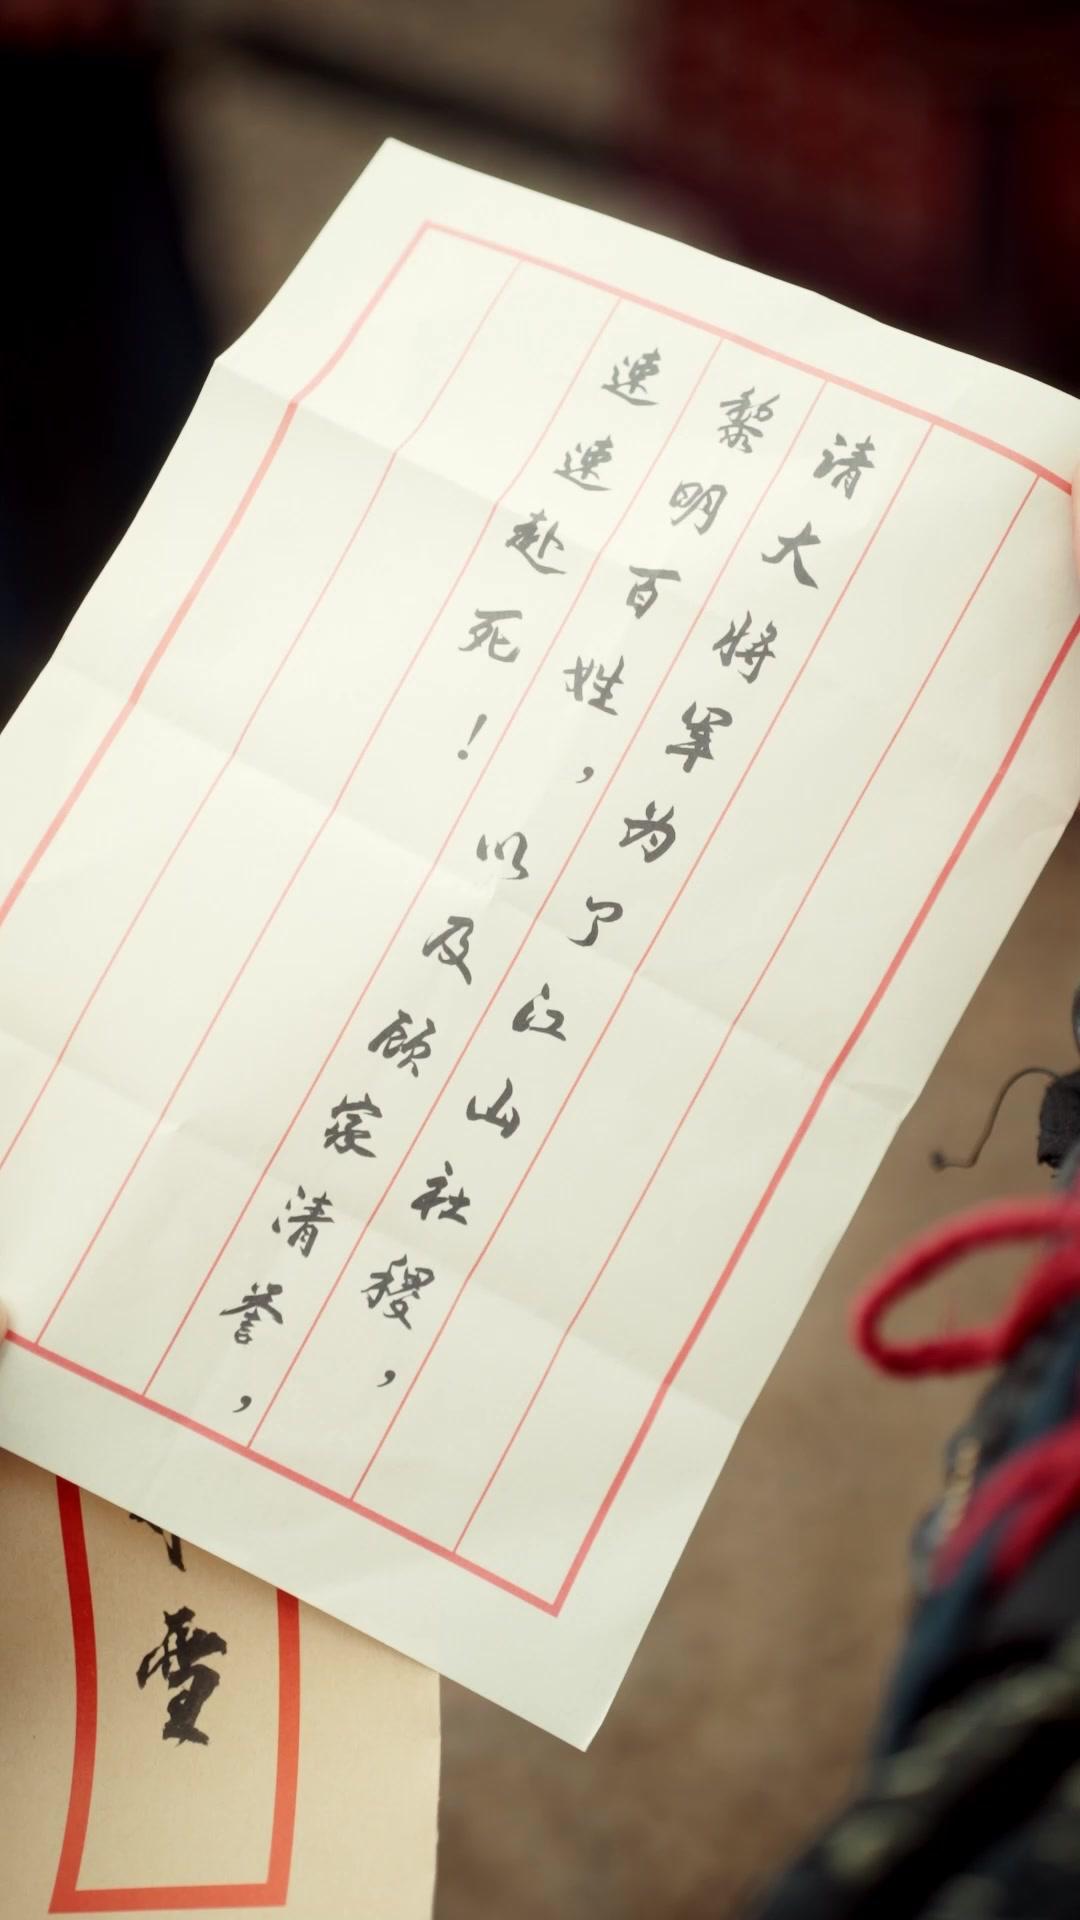 清大将军为了江山社稷，
黎明百姓，以及顾家清誉，
速速赴死！
雪